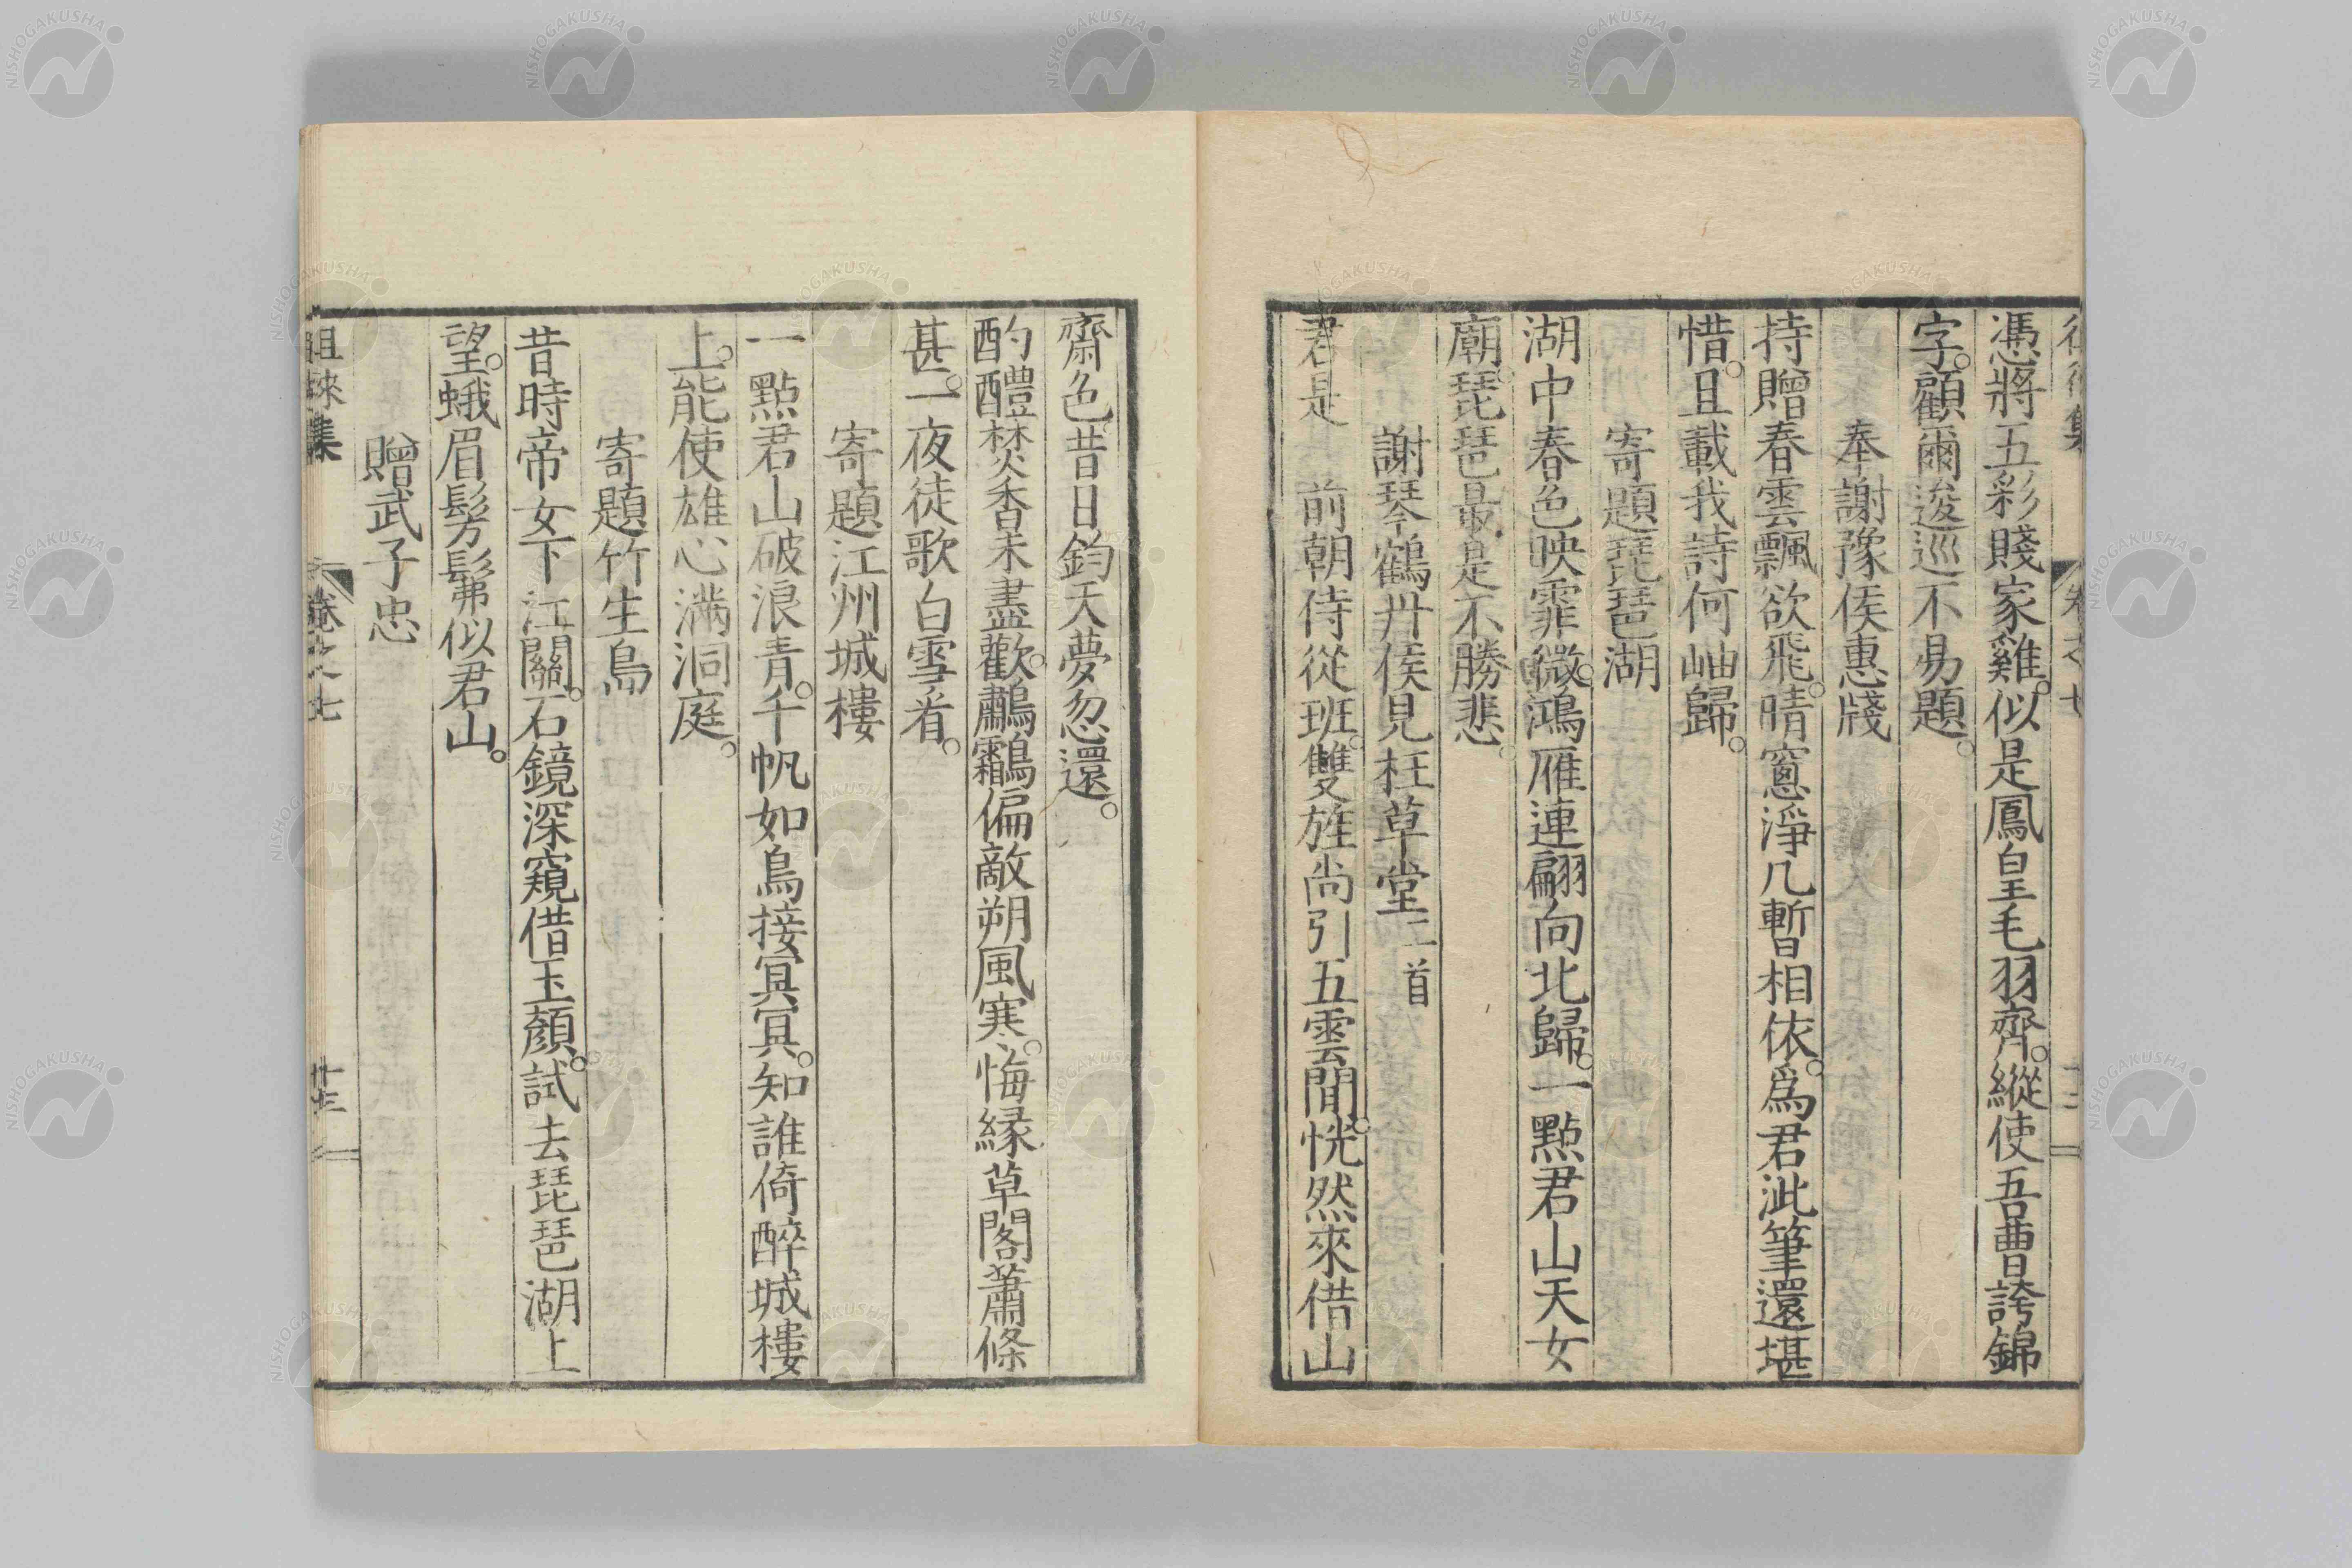 憑將五彩賤家雞。似是鳳皇毛羽齊。縱使吾曹誇錦
字。顧爾逡巡不易題。
奉謝豫侯惠牋
持贈春雲飄欲飛。晴窻淨几暫相依。爲君泚筆還堪
惜。且載我詩何岫歸。
寄題琵琶湖
湖中春色映霏微。鴻雁連翩向北歸。一點君山天女
廟。琵琶最是不勝悲。
謝琴鶴丹侯見枉草堂二首
君是前朝侍從班。雙旌尚引五雲間。恍然來借山
齋色。昔日鈞天夢忽還。
酌醴焚香未盡歡。鷫鸘偏敵朔風寒。悔緣草閣蕭條
甚。一夜徒歌白雪看。
寄題江州城樓
一點君山破浪青。千帆如鳥接冥冥。知誰倚醉城樓
上。能使雄心滿洞庭。
寄題竹生島
昔時帝女下江關。石鏡深窺借玉顏。試去琵琶湖上
望。蛾眉髣髴似君山。
贈武子忠
徂徠集 卷之七 十三
NISHOGAKUSHA